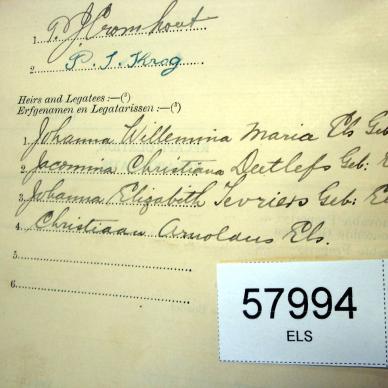 1. P. J. Cromhout
2. P. J. Krog
Heirs and Legatees :—(³)
Erfgenamen en Legatarissen :—(³)
1. Johanna Willemina Maria Els Geb
2. Jacomina Christiana Deetlefs Geb: E
3. Johanna Elizabith Jevriers Geb: El
4. Christiaan Arnoldus Els.
5.
6.
57994
ELS